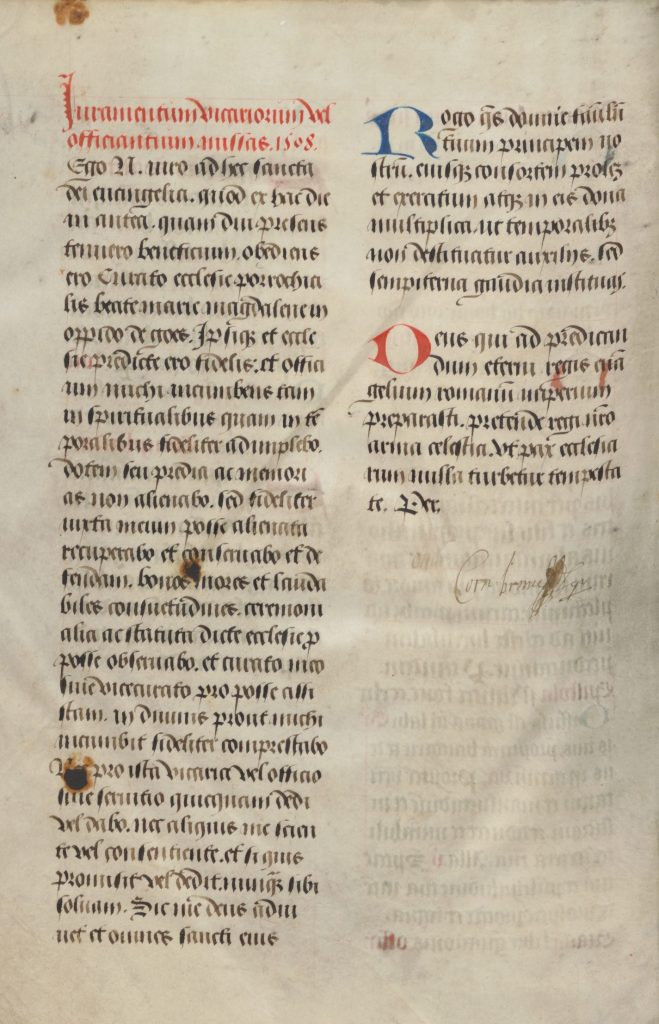 Juramentum vicariorum vel
officiantium missas. 1508.
Ego N. iuro ad hec sancta
dei euangelia. quod ex hac die
in antea. quam diu presens
tenuero beneficium. obediens
ero Curato ecclesie parrochia
lis beate marie magdalene in
oppido de goes. Ipsiq₃ et eccle
sie predicte ero fidelis. et offici
um michi incumbens tam
in spiritualibus quam in tē
poralibus fideliter adimplebo.
dotem seu predia ac memori
as non alienabo. sed fideliter
iuxta meum posse alienata
recuperabo et conseruabo et de
fendam. bonos mores et lauda
biles consuetudines. ceremoni
alia ac statuta dicte ecclesie ꝓ
posse obseruabo. et curato meo
siue vicecurato pro posse assi
stam. in diuinis prout michi
incumbit fideliter comprestabo
pro ista vicaria vel officio
siue seruitio quicquam dedi
vel dabo. nec aliquis me scien
te vel consentiente. et si quis
promisit vel dedit. nunq̄₃ sibi
soluam. Sic me deus adiu
uet et omnes sancti eius
Rogo q̄s domine famulū
tuum principem no
strū. eiusq₃ consortem prolē₃
et exercitum atq₃ in eis dona
multiplica. ut temporalib₃
non destituatur auxilijs. sed
sempiterna gaudia instituas.
Deus qui ad predican
dum eterni regis euā
gelium romanū imperium
preparasti. pretende regi nr̄o
arma celestia. Vt pax ecclesia
rum nulla turbetur tempesta
te. Per.
Corn